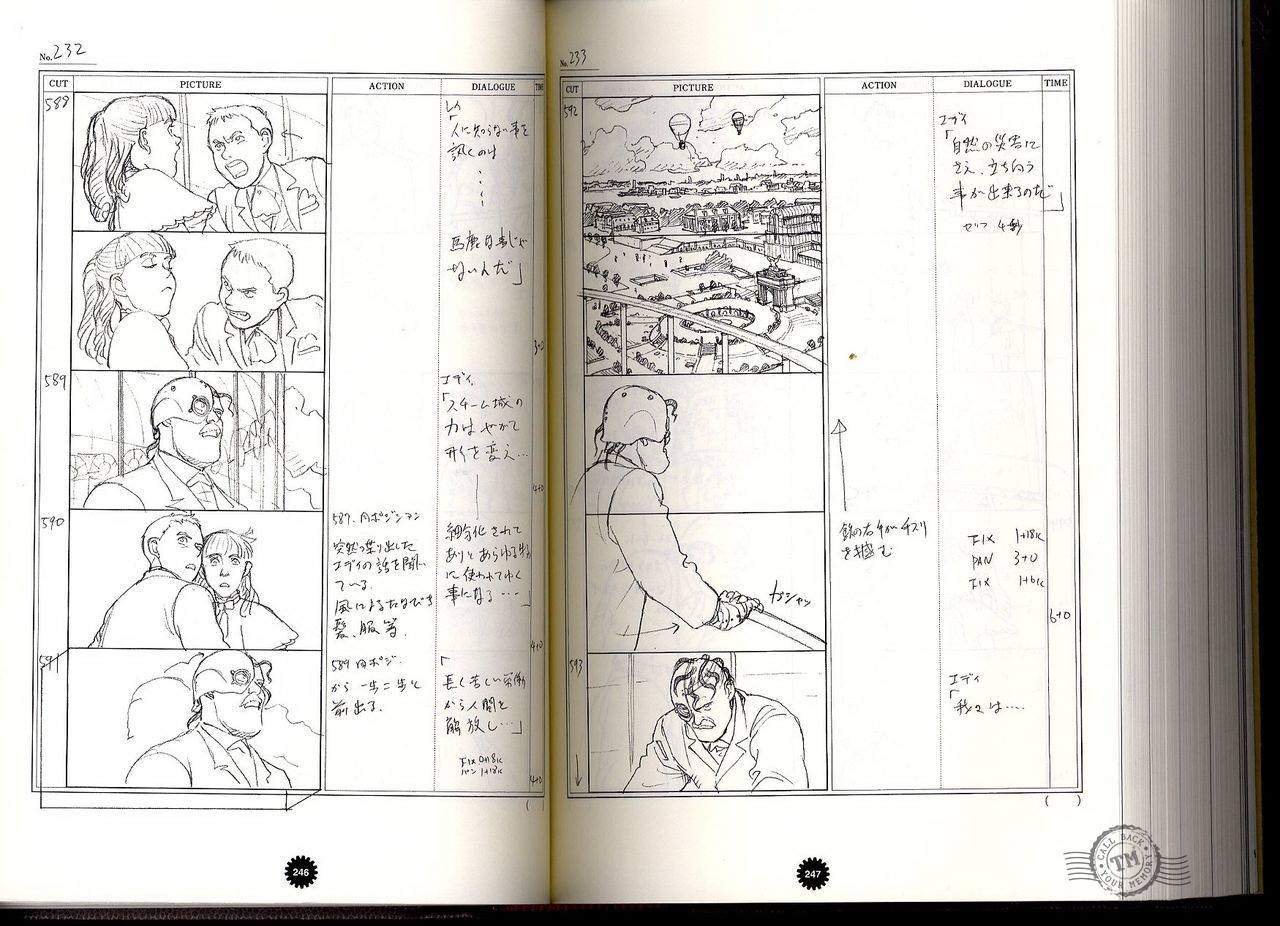 No. 232
CUT PICTURE ACTION DIALOGUE TIME
588
レイ
「人に知らない事を
訊くのは
馬鹿な事じゃ
ないんだ」
3+0
589
エディ
「スチーム城の
力はやがて
形を変え…
4+0
590
589.同ポジション
突然喋り出した
エディの話を聞い
ている。
風によるたなびき
髪、服等。
細分化されて
ありとあらゆる物
に使われてゆく
事になる…」
4+0
591
589 同ポジ.
から一歩二歩と
前出る.
「
長く苦しい労働
から人間を
解放し…」
FIX 0+18K
パン 1+18K
4+0
( )
246
No. 233
CUT PICTURE ACTION DIALOGUE TIME
592
エディ
「自然の災害に
さえ、立ち向う
事が出来るのだ」
セリフ 4秒
鉄の右手がテスリ
を掴む
ガシャッ
FIX 1+18K
PAN 3+0
FIX 1+6K
6+0
593
エディ
「
我々は….
( )
247
CALL BACK
TM
YOUR MEMORY